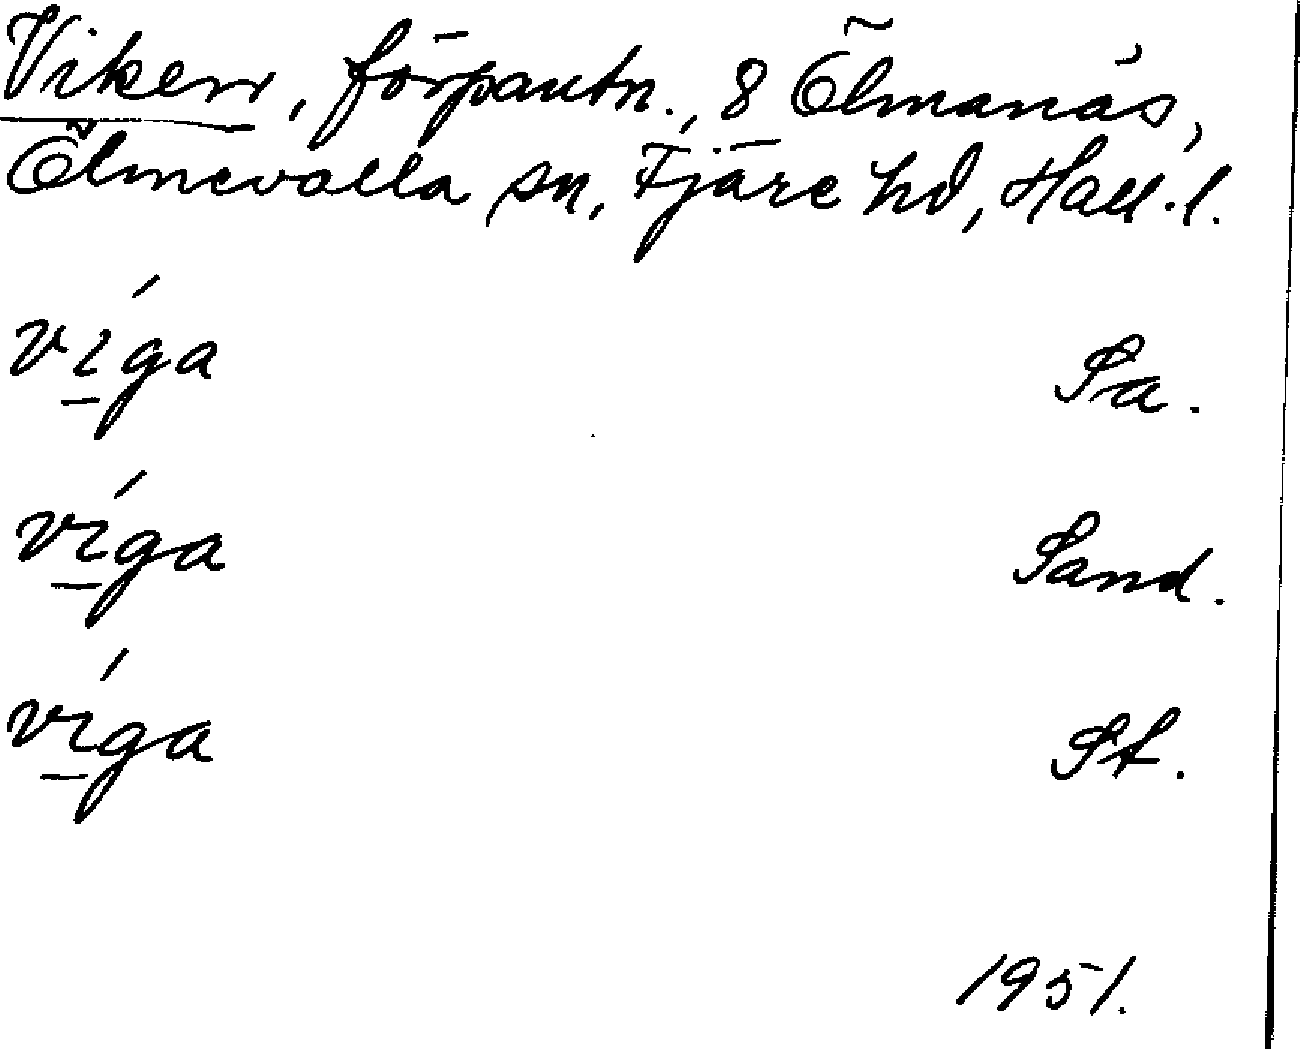 Viken, förpantn., 8 Ölmanäs,
Ölmevalla sn, Fjäre hd, Hall. l.
víga Sa.
víga Sand.
víga St.
1951.